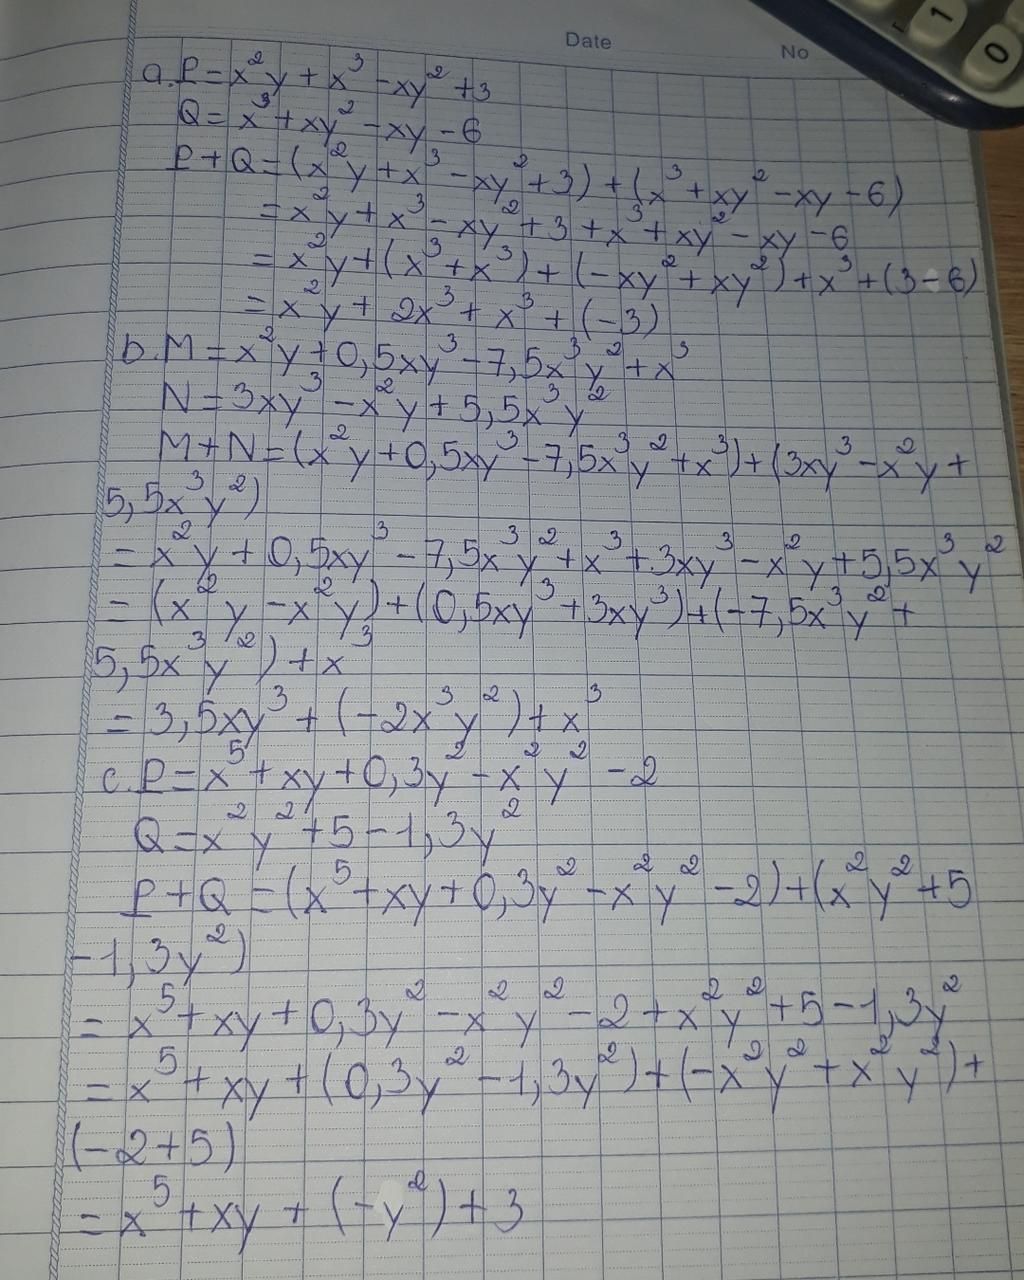 Date No
1
0
a. P = x²y + x³ - xy² + 3
Q = x³ + xy² - xy - 6
P + Q = (x²y + x³ - xy² + 3) + (x³ + xy² - xy - 6)
= x²y + x³ - xy² + 3 + x³ + xy² - xy - 6
= x²y + (x³ + x³) + (-xy² + xy²) + x³ + (3 - 6)
= x²y + 2x³ + x³ + (-3)
b. M = x²y + 0,5xy³ - 7,5x³y² + x³
N = 3xy³ - x²y + 5,5x³y²
M + N = (x²y + 0,5xy³ - 7,5x³y² + x³) + (3xy³ - x²y +
5,5x³y²)
= x²y + 0,5xy³ - 7,5x³y² + x³ + 3xy³ - x²y + 5,5x³y²
= (x²y - x²y) + (0,5xy³ + 3xy³) + (-7,5x³y² +
5,5x³y²) + x³
= 3,5xy³ + (-2x³y²) + x³
c. P = x⁵ + xy + 0,3y² - x²y² - 2
Q = x²y² + 5 - 1,3y²
P + Q = (x⁵ + xy + 0,3y² - x²y² - 2) + (x²y² + 5
- 1,3y²)
= x⁵ + xy + 0,3y² - x²y² - 2 + x²y² + 5 - 1,3y²
= x⁵ + xy + (0,3y² - 1,3y²) + (-x²y² + x²y²) +
(-2 + 5)
= x⁵ + xy + (-y²) + 3